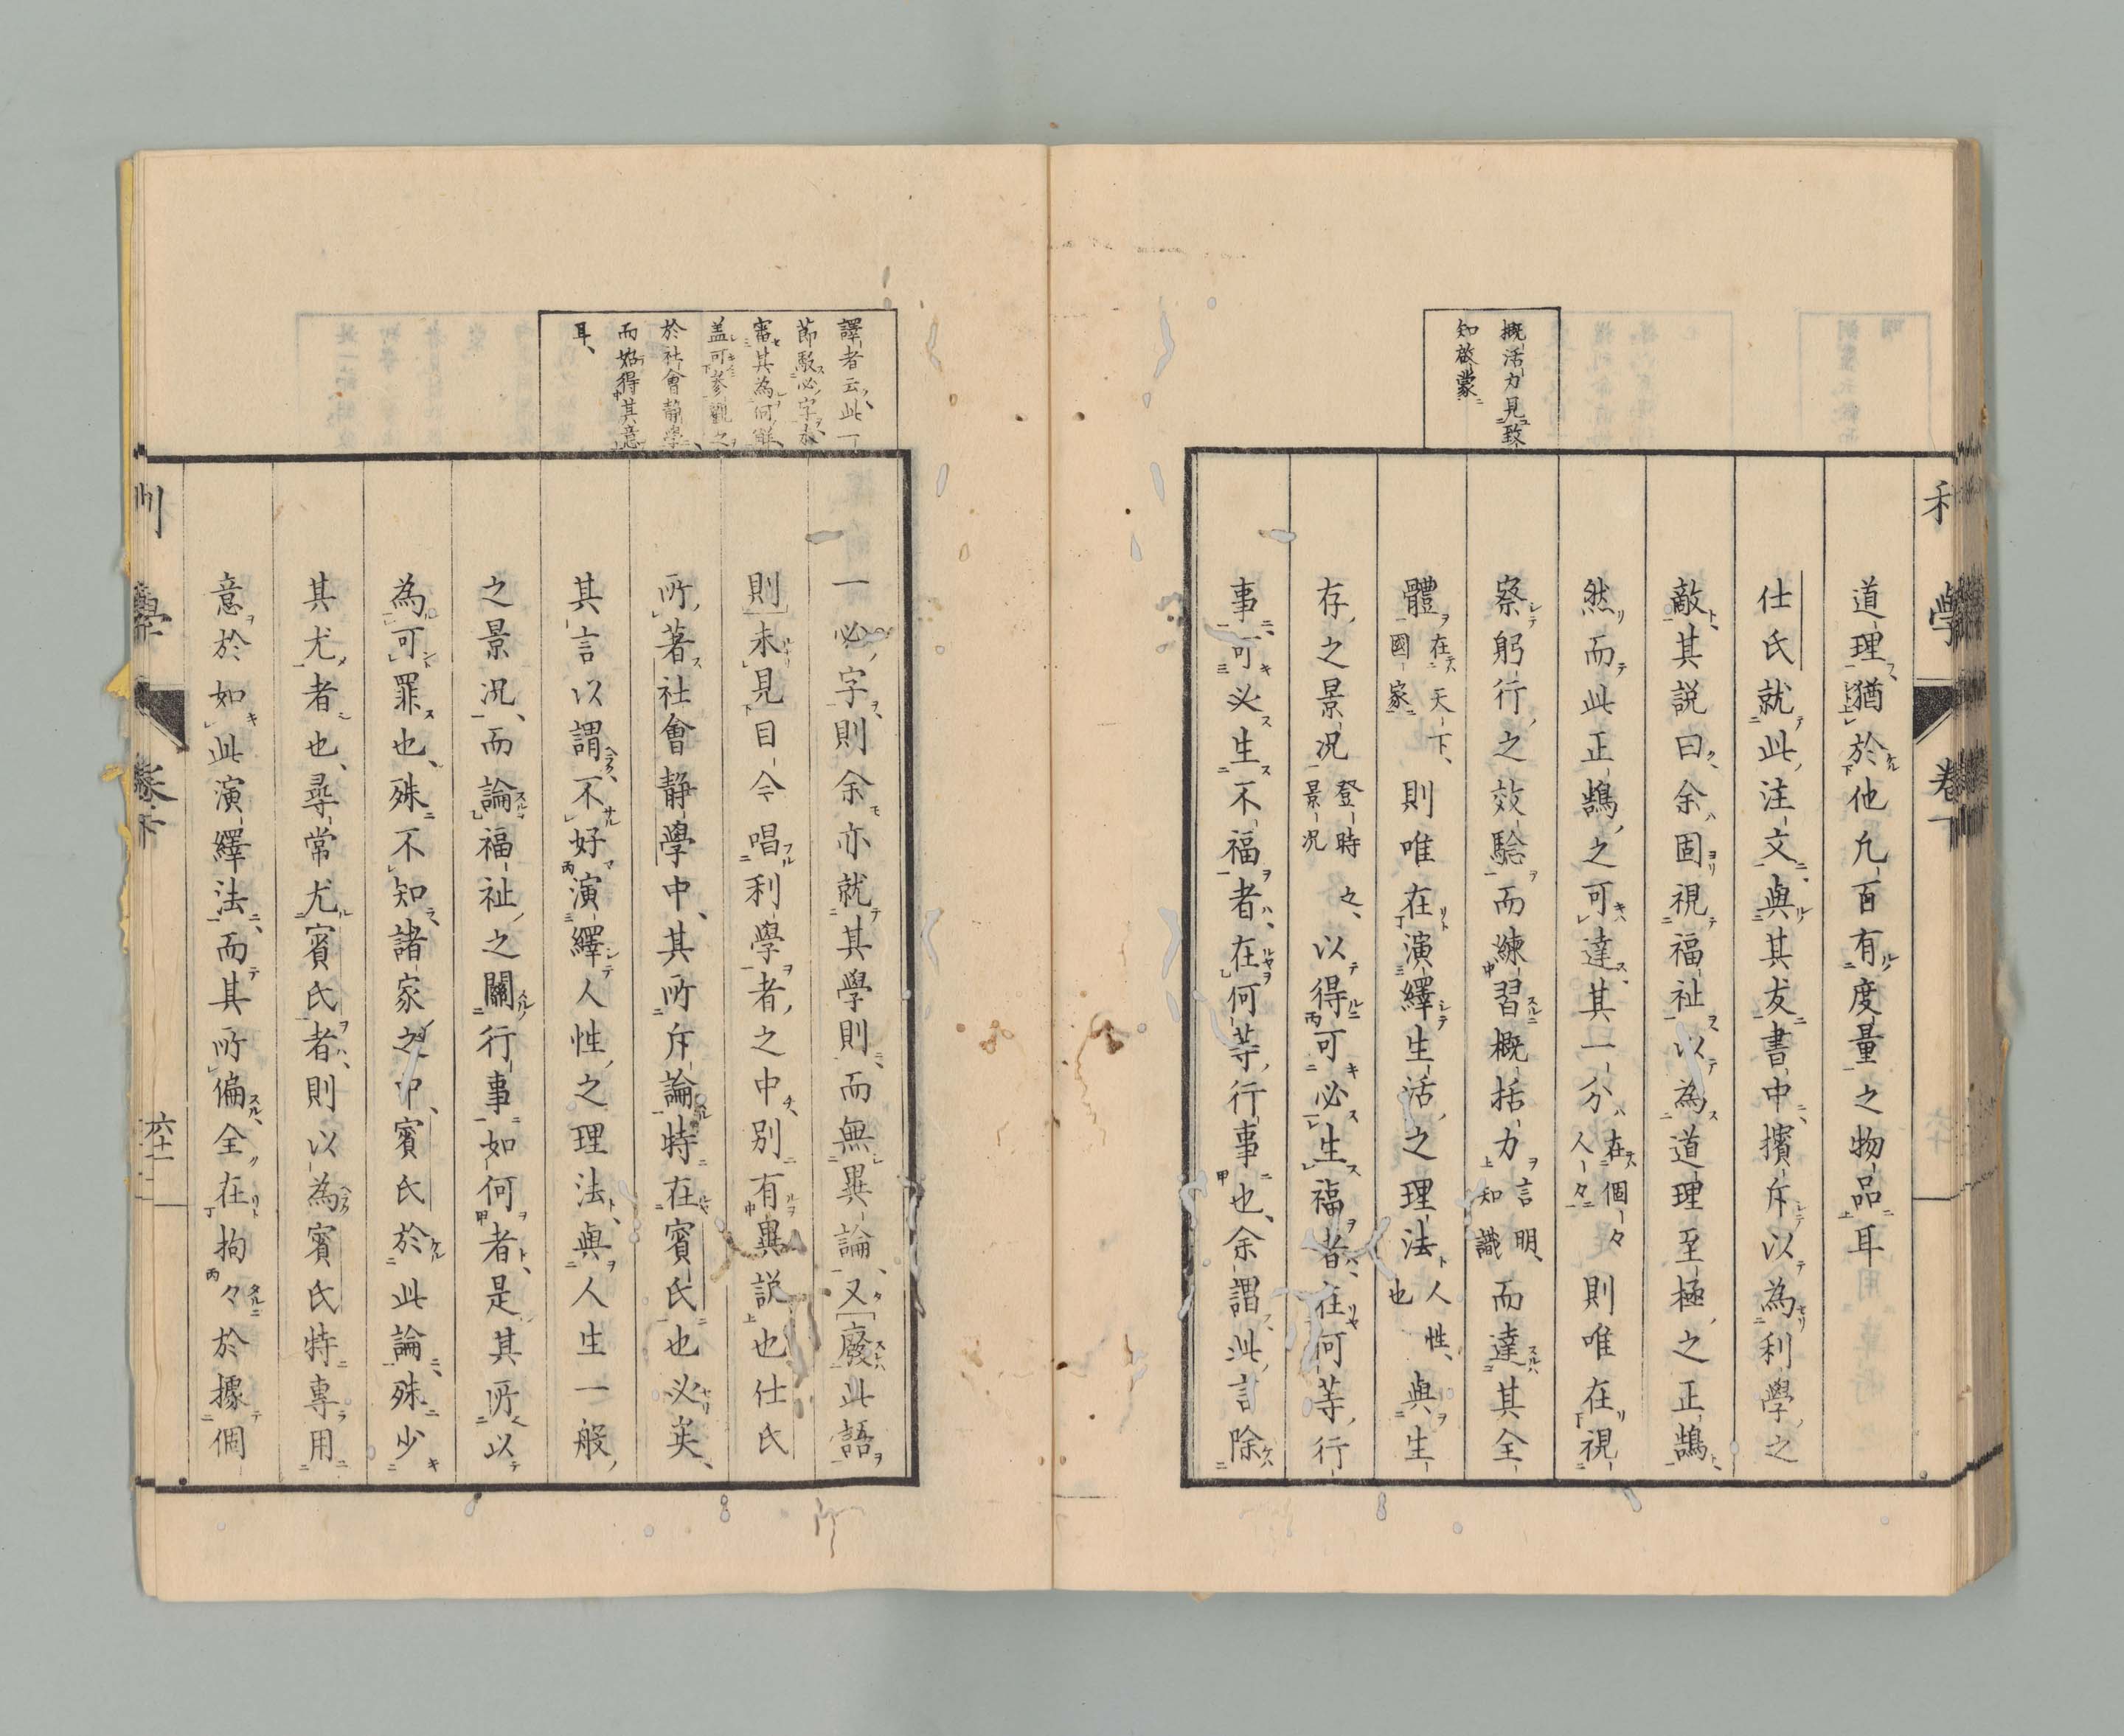 利學 卷下
道理猶於他九百有度量之物品耳
仕氏就此注文與其友書中擯斥以為利學之
敵其説曰余固視福祉以為道理至極之正鵠
然而此正鵠之可達其一分在個々人々則唯在視
察躬行之效驗而練習概括力言明知識而達其全
體在天下國家則唯在演繹生活之理法人性也與生
存之景況登時景況之以得可必生福者在何等行
事可必生不福者在何等行事也余謂此言除
概活力見致
知啟蒙
一必字則余亦就其學則而無異論又廢此語
則未見目今唱利學者之中別有異説也仕氏
所著社會靜學中其所斥論特在賓氏也必矣
其言以謂不好演繹人性之理法與人生一般
之景況而論福祉之關行事如何者是其所以
為可罪也殊不知諸家之中賓氏於此論殊少
其尤者也尋常尤賓氏者則以為賓氏特專用
意於如此演繹法而其所偏全在拘々於據個
譯者云此一
節駁必字
審其為何
蓋可參觀之
於社會靜學
而始得其意
耳
利學 卷下 六十一